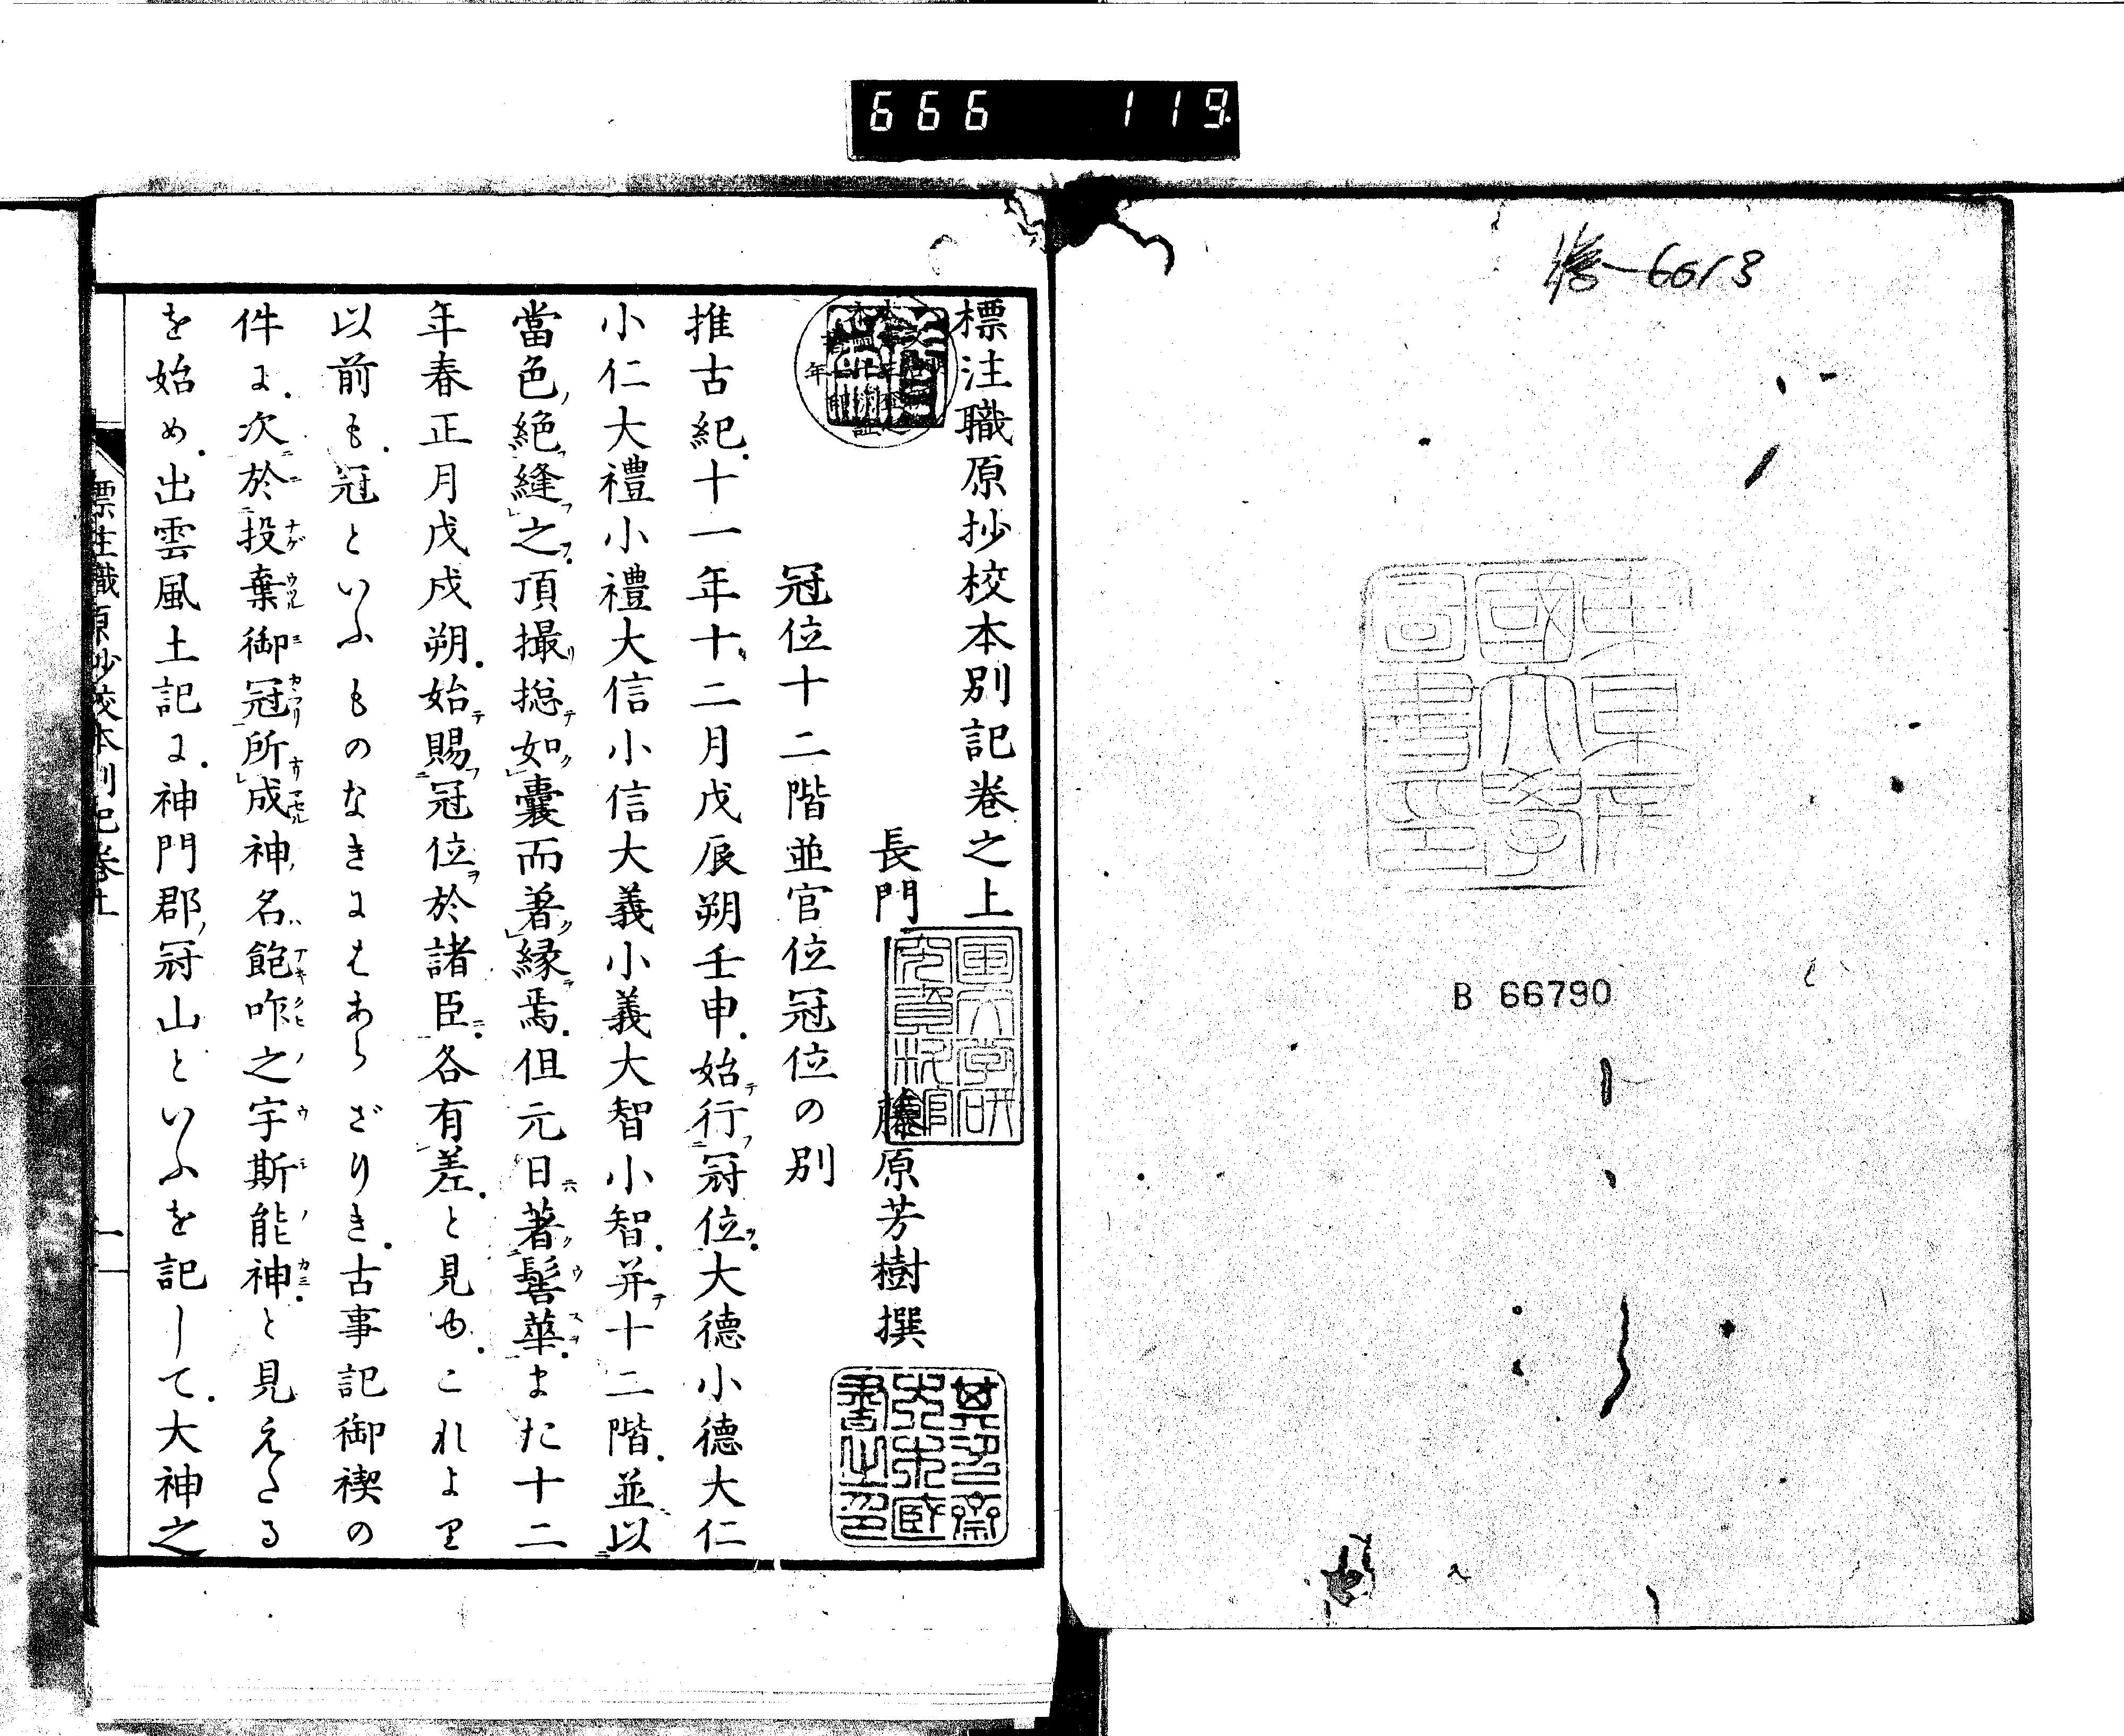 666 119
6613
B 66790
東京帝國大學圖書印
標注職原抄校本別記巻之上
長門 藤原芳樹撰
冠位十二階並官位冠位の別
推古紀十一年十二月戊辰朔壬申始行冠位大德小德大仁
小仁大禮小禮大信小信大義小義大智小智并十二階並以
當色絁縫之頂撮揔如囊而著縁焉但元日著髻華また十二
年春正月戊戌朔始賜冠位於諸臣各有差と見ゆこれより
以前も冠といふものなきにはあらざりき古事記御禊の
件に次於投棄御冠所成神名飽咋之宇斯能神と見えたる
を始め出雲風土記に神門郡冠山といふを記して大神之
標注職原抄校本別記巻上
一